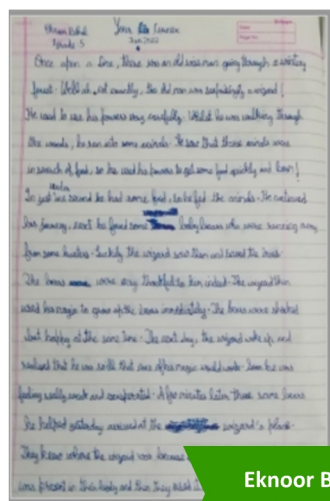 Grade 5
Jun 2022
Once upon a time, there was an old wise man going through a wintry
forest. Well ok, not exactly, the old man was surprisingly a wizard!
He used to use his powers very carefully. Whilst he was walking through
the woods, he ran into some animals. He saw that those animals were
in search of food, so he used his powers to get some food quickly and
In just one second he had some food, so he fed the animals. He continued
his journey, next he found some baby bears who were running away
from some hunters. Luckily the wizard saw them and saved the
The bears were very thankful to him indeed. The wizard then
used his magic to grow up the bears immediately. The bears were shocked
but happy at the same time. The next day, the wizard woke up and
realised that he was so ill that none of his magic would work. Soon he was
feeling really weak and exasperated. A few minutes later, those same bears
he helped yesterday arrived at the wizard's place.
They knew where the wizard was because
was present in their body and then they used
Eknoor B